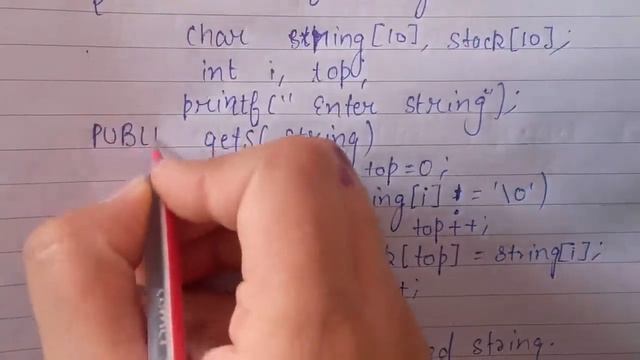 char string[10], stack[10];
int i, top;
printf(" Enter string");
PUBLI gets( string)
top=0;
ing[i] != '\0')
top++;
k[top] = string[i];
+;
ed string.